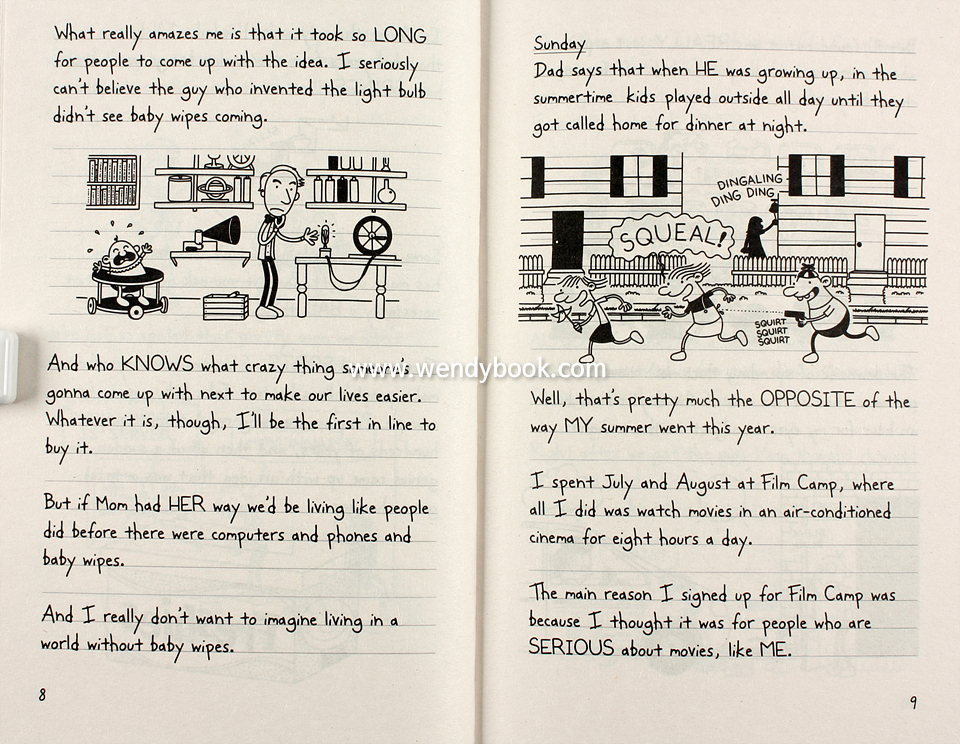 What really amazes me is that it took so LONG
for people to come up with the idea. I seriously
can't believe the guy who invented the light bulb
didn't see baby wipes coming.
And who KNOWS what crazy thing someone's
gonna come up with next to make our lives easier.
Whatever it is, though, I'll be the first in line to
buy it.
But if Mom had HER way we'd be living like people
did before there were computers and phones and
baby wipes.
And I really don't want to imagine living in a
world without baby wipes.
8
Sunday
Dad says that when HE was growing up, in the
summertime kids played outside all day until they
got called home for dinner at night.
DINGALING
DING DING
SQUEAL!
SQUIRT
SQUIRT
SQUIRT
www.wendybook.com
Well, that's pretty much the OPPOSITE of the
way MY summer went this year.
I spent July and August at Film Camp, where
all I did was watch movies in an air-conditioned
cinema for eight hours a day.
The main reason I signed up for Film Camp was
because I thought it was for people who are
SERIOUS about movies, like ME.
9